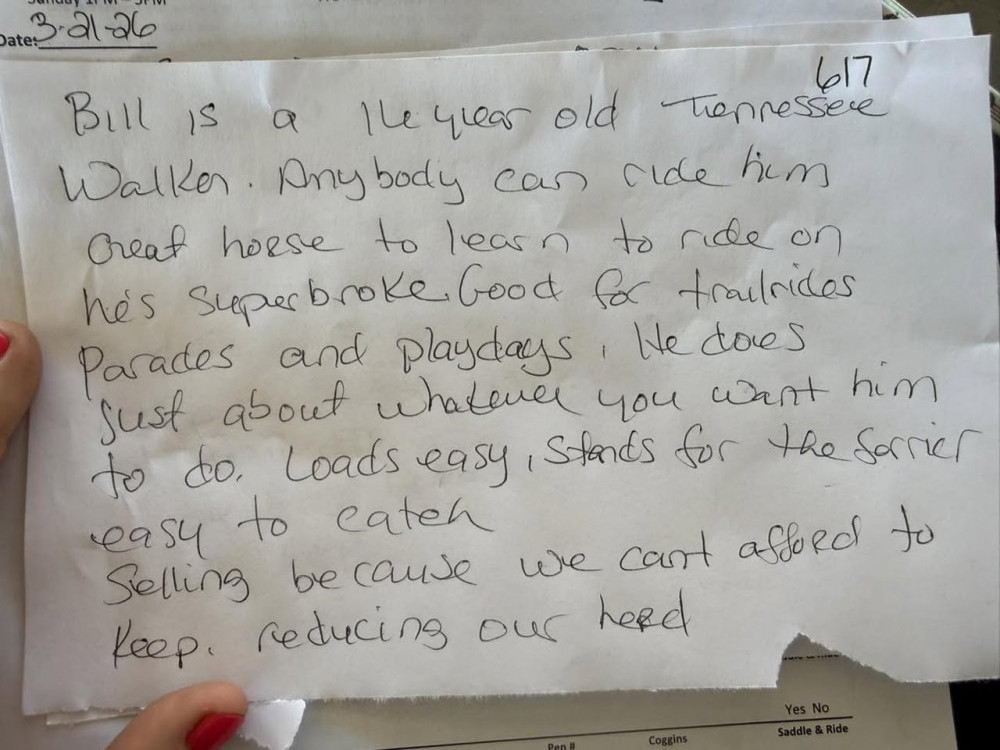 Date: 3-21-26
617
Bill is a 16 year old Tennessee
Walker. Anybody can ride him
Great horse to learn to ride on
he's Superbroke. Good for trailrides
Parades and playdays, He does
just about whatever you want him
to do. Loads easy, Stands for the farrier
easy to catch
Selling because we can't afford to
Keep. reducing our herd
Yes No
Pen # Coggins Saddle & Ride